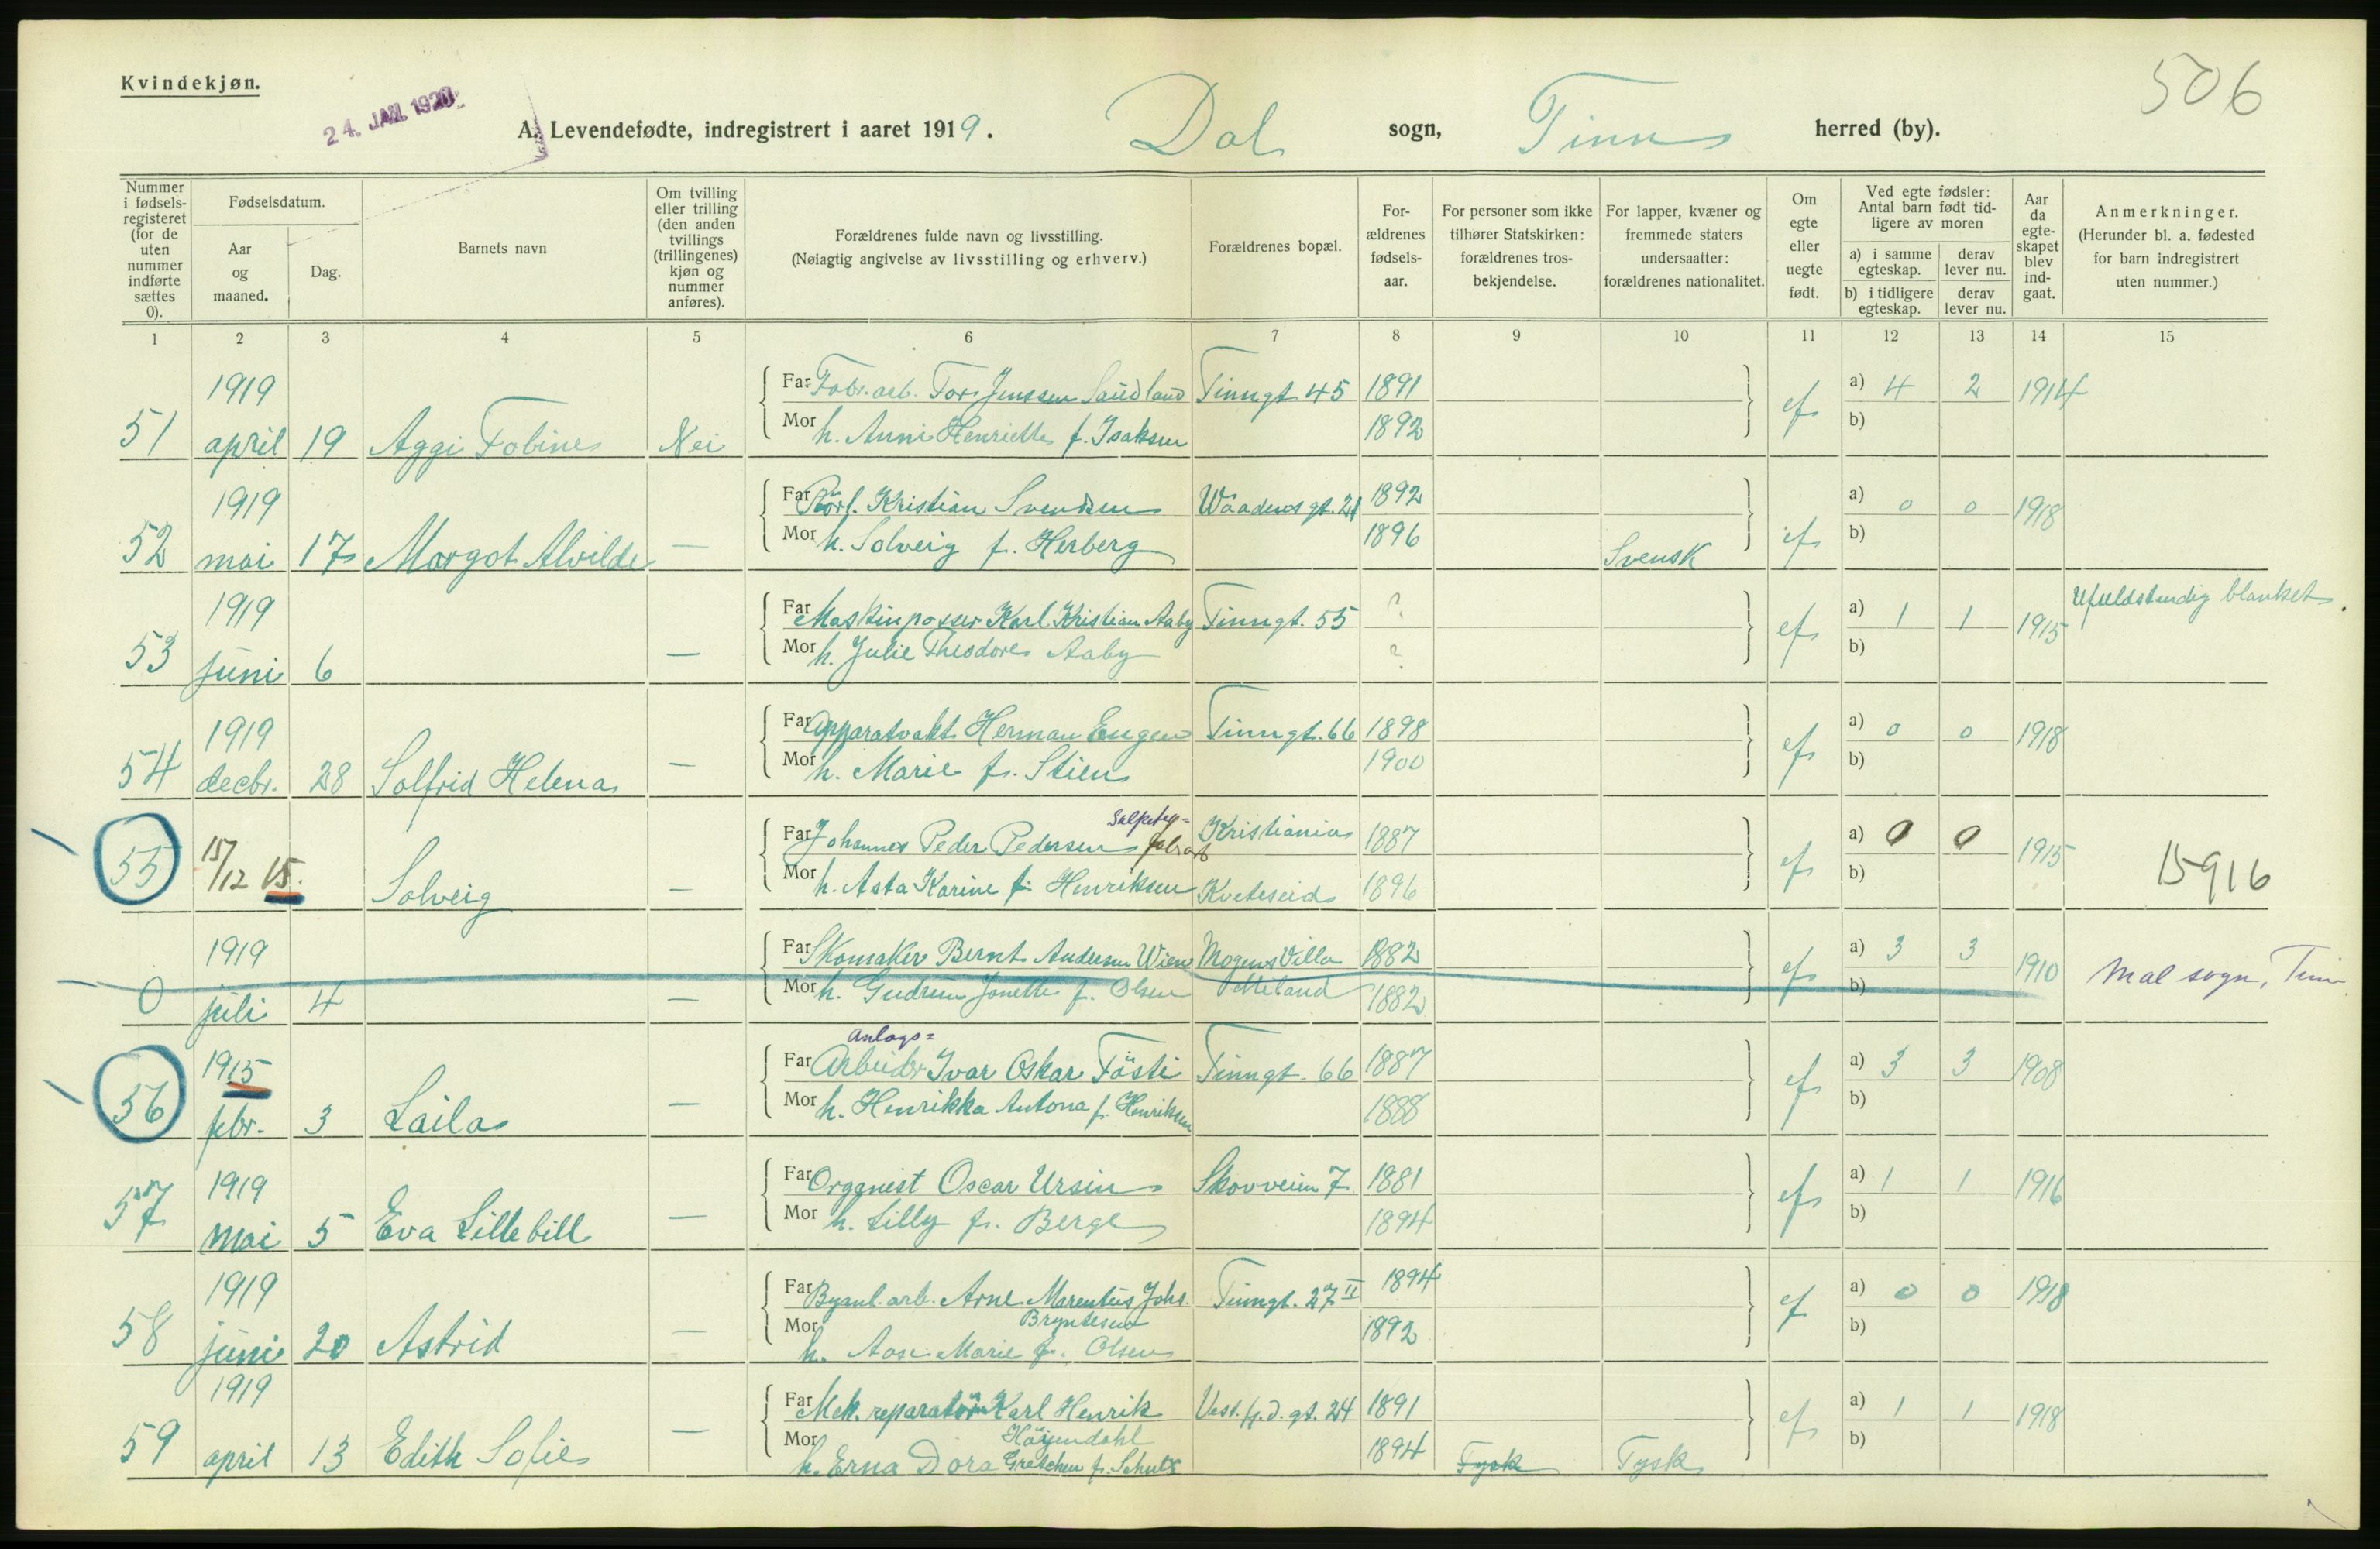 Kvindekjøn.
506
24. JAN. 1920.
A. Levendefødte, indregistrert i aaret 1919. Dal sogn, Tinn herred (by).
Nummer i fødselsregisteret (for de uten nummer indførte sættes 0).
Fødselsdatum.
Aar og maaned.
Dag.
Barnets navn
Om tvilling eller trilling (den anden tvillings (trillingenes) kjøn og nummer anføres).
Forældrenes fulde navn og livsstilling.
(Nøiagtig angivelse av livsstilling og erhverv.)
Forældrenes bopæl.
Forældrenes fødselsaar.
For personer som ikke tilhører Statskirken: forældrenes trosbekjendelse.
For lapper, kvæner og fremmede staters undersaatter: forældrenes nationalitet.
Om egte eller uegte født.
Ved egte fødsler: Antal barn født tidligere av moren
a) i samme egteskap.
derav lever nu.
b) i tidligere egteskap.
derav lever nu.
Aar da egteskapet blev indgaat.
Anmerkninger.
(Herunder bl. a. fødested for barn indregistrert uten nummer.)
1 2 3 4 5 6 7 8 9 10 11 12 13 14 15
1919 Far Fabr. arb. Tor Jenssen Saudland Tinngt. 45 1891 a) 4 2 1914
51 april 19 Aggi Tobine Nei Mor h. Anni Henriette f. Isaksen 1892 ef b)
1919 Far Rørl. Kristian Svendsen Waadens gt. 21 1892 a) 0 0 1918
52 mai 17 Margot Alvilde — Mor h. Solveig f. Herberg 1896 Svensk ef b)
1919 Far Maskinpasser Karl Kristian Aaby Tinngt. 55 ? a) 1 1 1915 Ufuldstendig blanket.
53 juni 6 — Mor h. Julie Theodore Aaby ? ef b)
1919 Far Apparatvakt Herman Engen Tinngt. 66 1898 a) 0 0 1918
54 decbr. 28 Solfrid Helena — Mor h. Marie f. Stien 1900 ef b)
55 15/12 15. Far Johannes Peder Pedersen Kristiania 1887 a) 0 0 1915 15916
Solveig — Mor h. Asta Karine f. Henriksen Kviteseid 1896 ef b)
1919 Far Skomaker Bernt Andersen Wien Mogens Villa 1882 a) 3 3 1910 Mæl sogn, Tinn
0 juli 4 — Mor h. Gudrun Jonette f. Olsen Miland 1882 ef b)
Anlægs=
1915 Far Arbeider Ivar Oskar Fösti Tinngt. 66 1887 a) 3 3 1908
56 febr. 3 Laila — Mor h. Henrikka Antona f. Henriksen 1888 ef b)
1919 Far Organist Oscar Ursin Skovveien 7 1881 a) 1 1 1916
57 mai 5 Eva Lillebill — Mor h. Lilly f. Berge 1894 ef b)
1919 Far Byanl. arb. Arne Marentius Johs. Tinngt. 27 II 1894 a) 0 0 1918
Bryntesen
58 juni 20 Astrid — Mor h. Aase Marie f. Olsen 1892 ef b)
1919 Far Mek. reparatör Karl Henrik Vestfj.d. gt. 24 1891 a) 1 1 1918
Höyendahl
59 april 13 Edith Sofie — Mor h. Erna Dora Gretchen f. Schultz 1894 Tysk Tysk ef b)